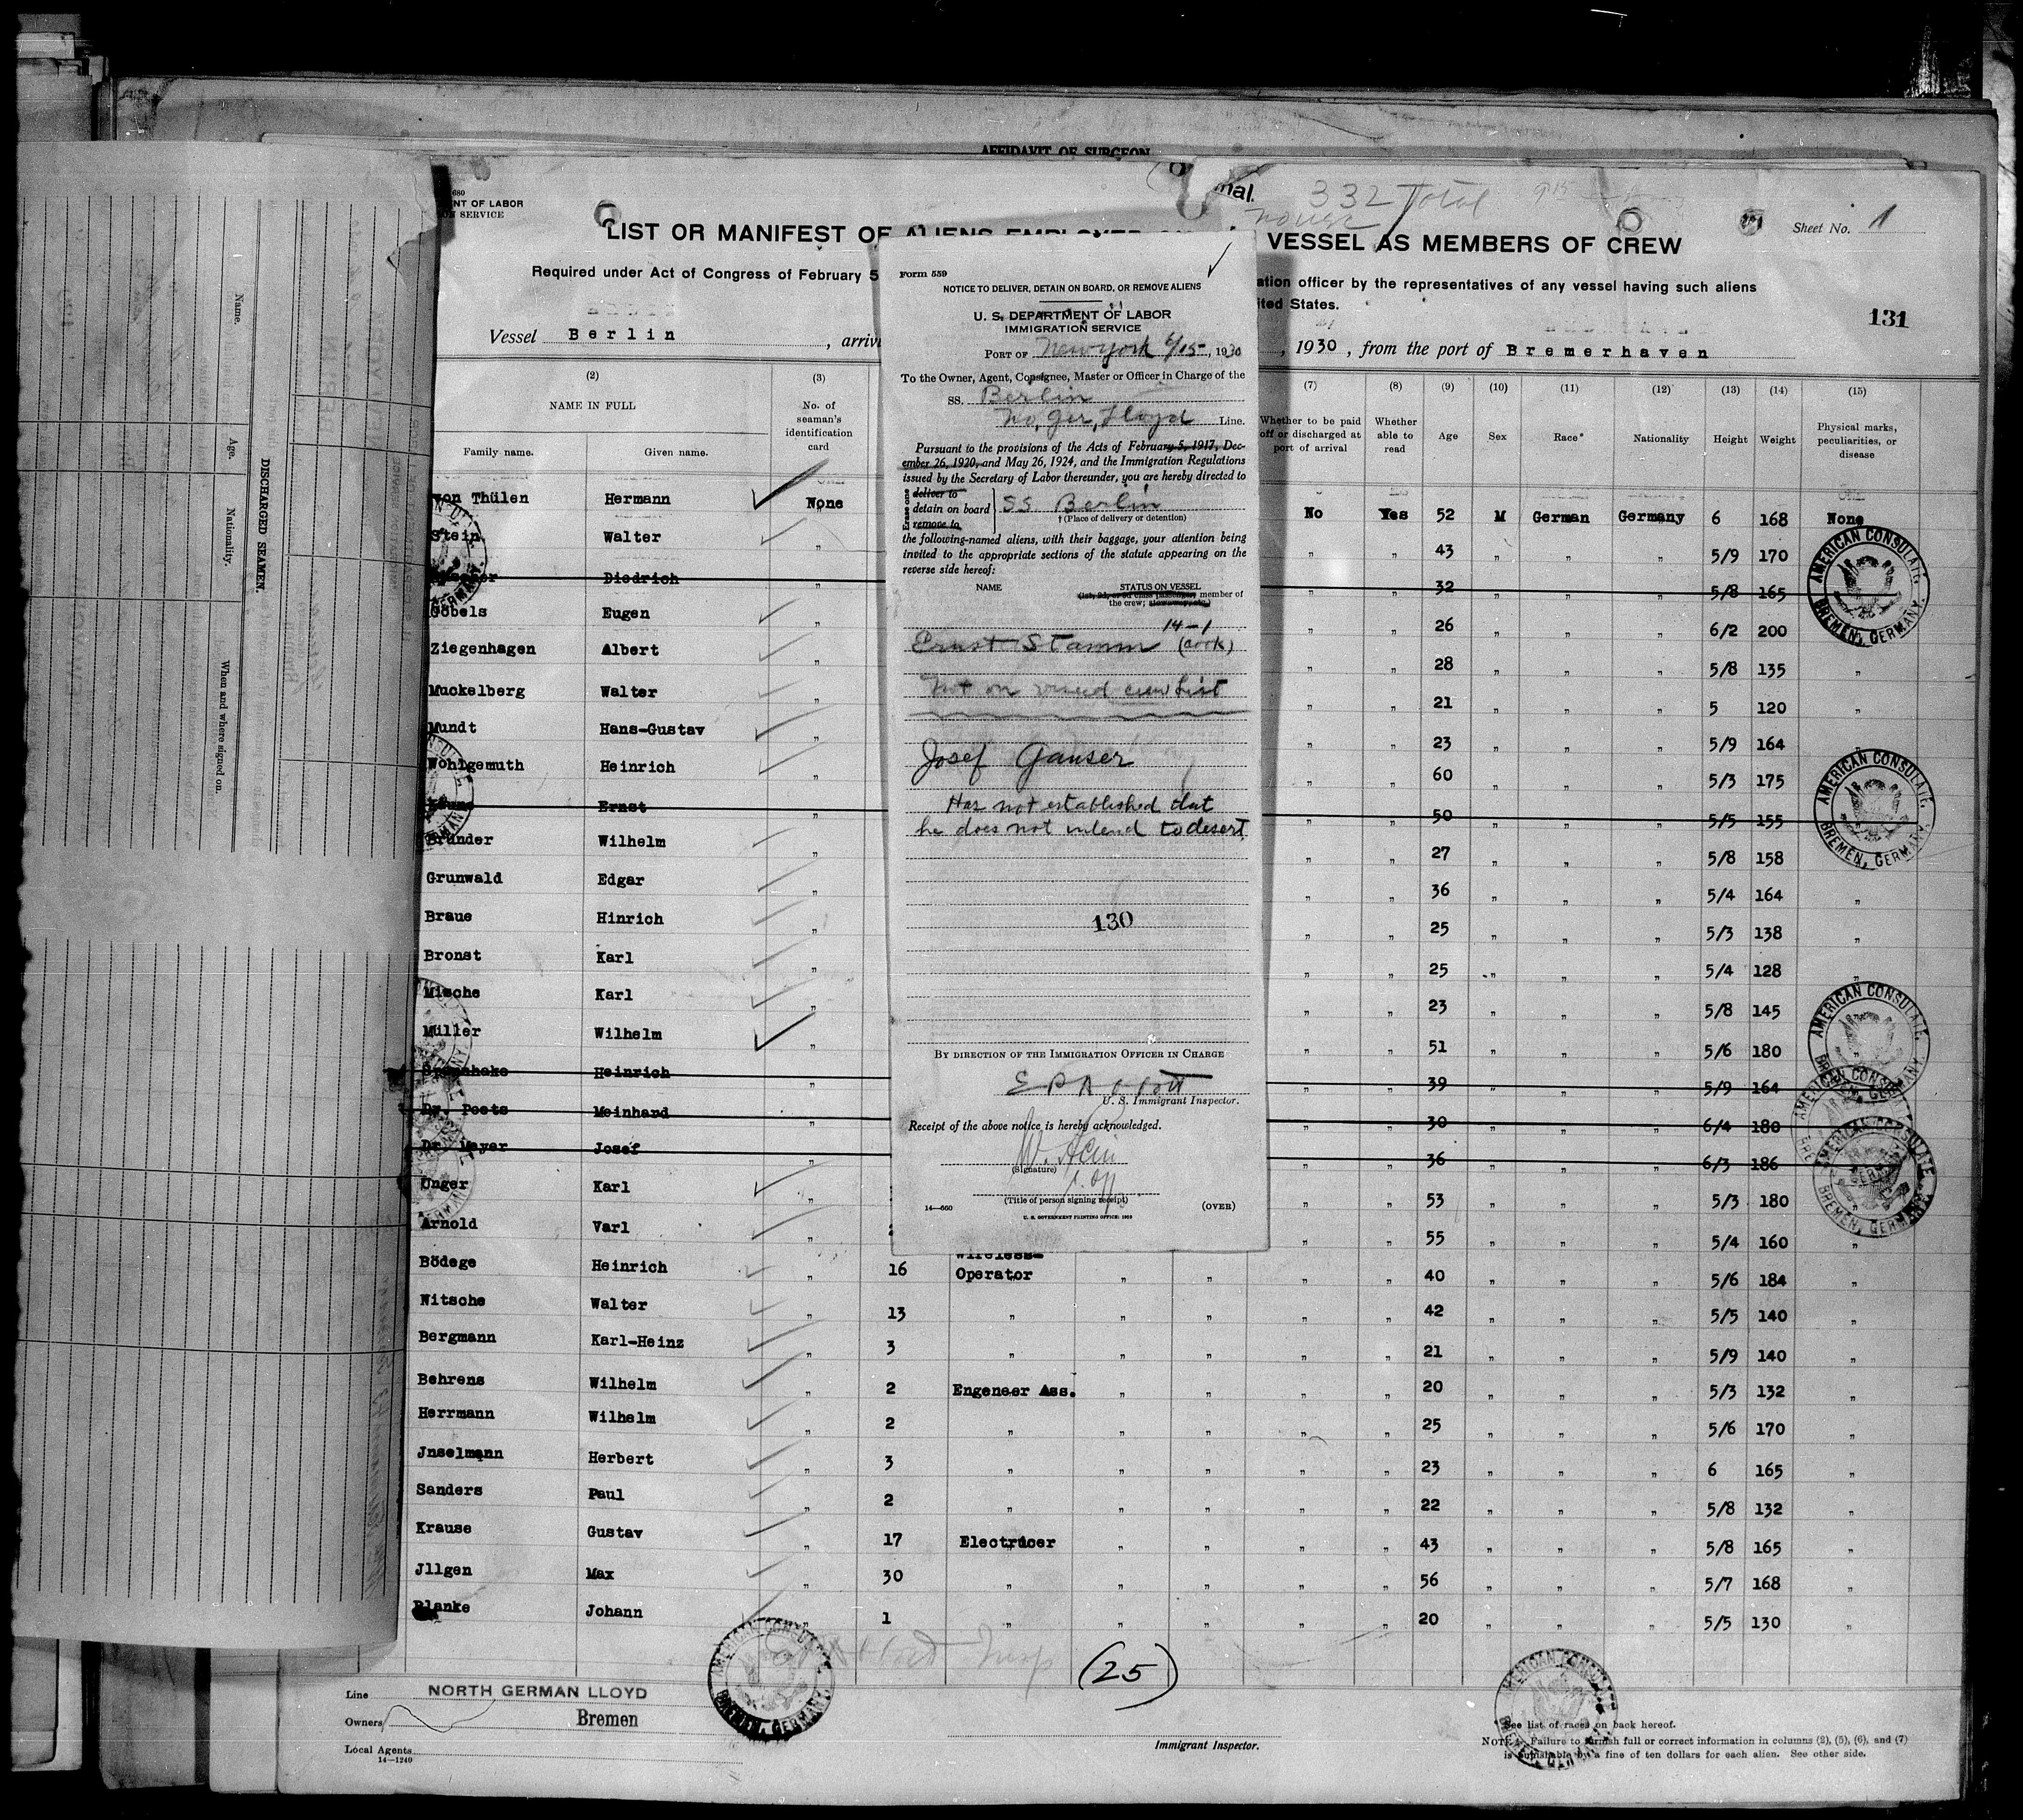 AFFIDAVIT OF SURGEON
680
NT OF LABOR
ON SERVICE
nal.
332 Total
Sheet No. 1
LIST OR MANIFEST OF ALIENS EMPLOYED VESSEL AS MEMBERS OF CREW
Required under Act of Congress of February 5
ation officer by the representatives of any vessel having such aliens
ited States.
131
Vessel Berlin, arriv
, 1930, from the port of Bremerhaven
(2) (3) (7) (8) (9) (10) (11) (12) (13) (14) (15)
NAME IN FULL
Family name. Given name.
No. of seaman's identification card
Whether to be paid off or discharged at port of arrival
Whether able to read
Age Sex Race* Nationality Height Weight
Physical marks, peculiarities, or disease
von Thülen Hermann None No Yes 52 M German Germany 6 168 None
Stein Walter " " " 43 " " " 5/9 170
Diedrich " 32 5/8 165
Göbels Eugen " " " 26 " " " 6/2 200
Ziegenhagen Albert " " " 28 " " " 5/8 135 "
Muckelberg Walter " " " 21 " " " 5 120 "
Mundt Hans-Gustav " " " 23 " " " 5/9 164 "
Wohlgemuth Heinrich " " " 60 " " " 5/3 175
Ernst " " " 50 " " " 5/5 155
Bründer Wilhelm " " " 27 " " " 5/8 158
Grunwald Edgar " " " 36 " " " 5/4 164 "
Braue Hinrich " " " 25 " " " 5/3 138 "
Bronst Karl " " " 25 " " " 5/4 128 "
Mische Karl " " " 23 " " " 5/8 145
Müller Wilhelm " " " 51 " " " 5/6 180
Heinrich " " " 39 " " " 5/9 164
Dr. Poets Meinhard " " " 30 " " " 6/4 180
Dr. Meyer Josef " " " 36 " " " 6/3 186
Unger Karl " " " 53 " " " 5/3 180
Arnold Varl " " " 55 " " " 5/4 160 "
Wireless-
Bödege Heinrich " 16 Operator " " " " 40 " " " 5/6 184 "
Nitsche Walter " 13 " " " " " 42 " " " 5/5 140 "
Bergmann Karl-Heinz " 3 " " " " " 21 " " " 5/9 140 "
Behrens Wilhelm " 2 Engeneer Ass. " " " " 20 " " " 5/3 132 "
Herrmann Wilhelm " 2 " " " " " 25 " " " 5/6 170 "
Jnselmann Herbert " 3 " " " " " 23 " " " 6 165 "
Sanders Paul " 2 " " " " " 22 " " " 5/8 132 "
Krause Gustav " 17 Electricer " " " " 43 " " " 5/8 165 "
Jllgen Max " 30 " " " " " 56 " " " 5/7 168 "
Blanke Johann " 1 " " " " " 20 " " " 5/5 130 "
(25)
Line NORTH GERMAN LLOYD
Owners Bremen
Local Agents
14—1240
Immigrant Inspector.
* See list of races on back hereof.
NOTE.—Failure to furnish full or correct information in columns (2), (5), (6), and (7)
is punishable by a fine of ten dollars for each alien. See other side.
Form 559
NOTICE TO DELIVER, DETAIN ON BOARD, OR REMOVE ALIENS
U. S. DEPARTMENT OF LABOR
IMMIGRATION SERVICE
PORT OF New York 6/15, 1930
To the Owner, Agent, Consignee, Master or Officer in Charge of the
SS. Berlin
No. Ger. Lloyd Line.
Pursuant to the provisions of the Acts of February 5, 1917, Dec-
ember 26, 1920, and May 26, 1924, and the Immigration Regulations
issued by the Secretary of Labor thereunder, you are hereby directed to
Erase one
deliver to
detain on board SS Berlin
remove to
† (Place of delivery or detention)
the following-named aliens, with their baggage, your attention being
invited to the appropriate sections of the statute appearing on the
reverse side hereof:
NAME STATUS ON VESSEL
(1st, 2d, or 3d class passenger, member of
the crew;
14-1
Ernst Stamm (cook)
Not on visaed crew List
Josef Ganser
Has not established that
he does not intend to desert
130
BY DIRECTION OF THE IMMIGRATION OFFICER IN CHARGE
U. S. Immigrant Inspector.
Receipt of the above notice is hereby acknowledged.
(Signature)
(Title of person signing receipt)
14—660 (OVER)
U. S. GOVERNMENT PRINTING OFFICE: 1928
DISCHARGED SEAMEN.
Name. Age. Nationality. When and where signed on.
AMERICAN CONSULATE, BREMEN, GERMANY.
AMERICAN CONSULATE, BREMEN, GERMANY.
AMERICAN CONSULATE, BREMEN, GERMANY.
AMERICAN CONSULATE, BREMEN, GERMANY.
AMERICAN CONSULATE, BREMEN, GERMANY.
AMERICAN CONSULATE, BREMEN, GERMANY.